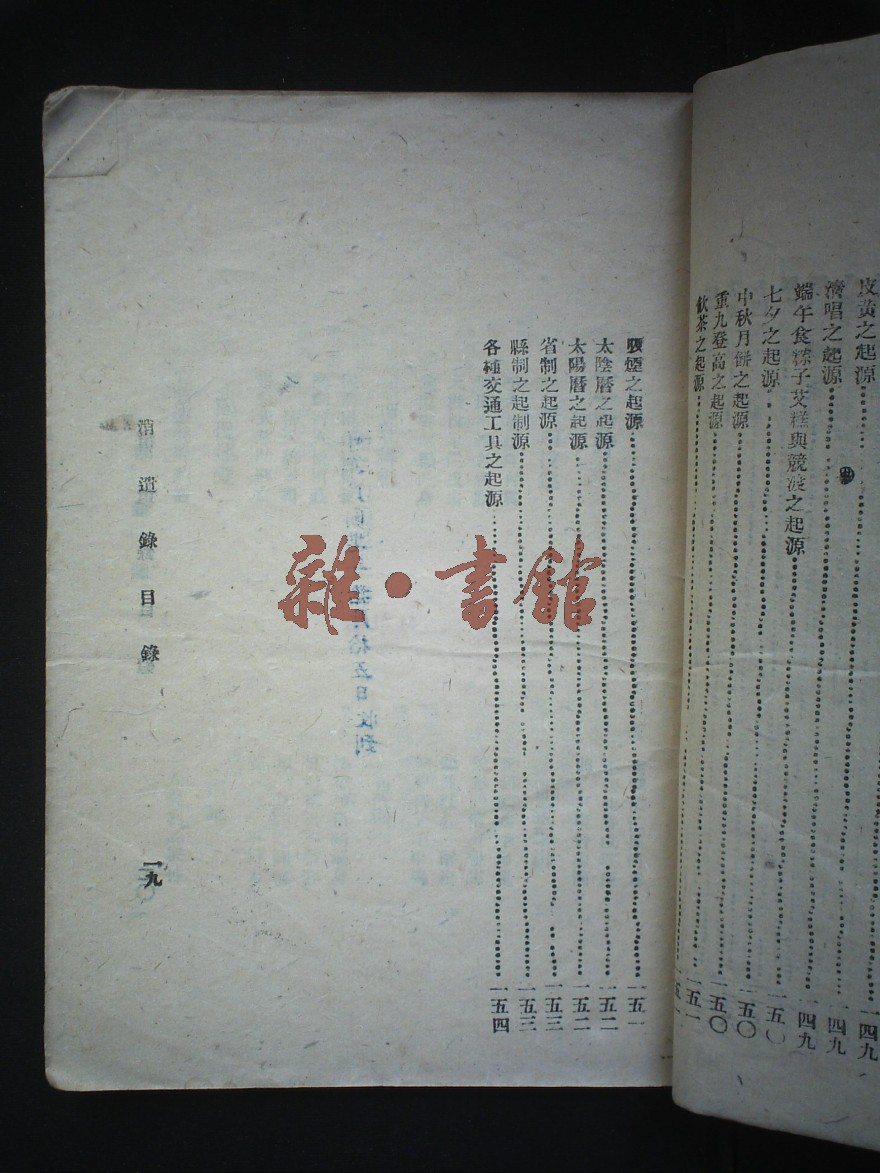 皮黄之起源 一四九
演唱之起源 一四九
端午食粽子艾糕與競渡之起源 一四九
七夕之起源 一五〇
中秋月餅之起源 一五〇
重九登高之起源 一五〇
飲茶之起源
煙之起源 一五一
太陰曆之起源 一五二
太陽曆之起源 一五二
省制之起源 一五三
縣制之起制源 一五三
各種交通工具之起源 一五四
消遣錄目錄
一九
雜·書館